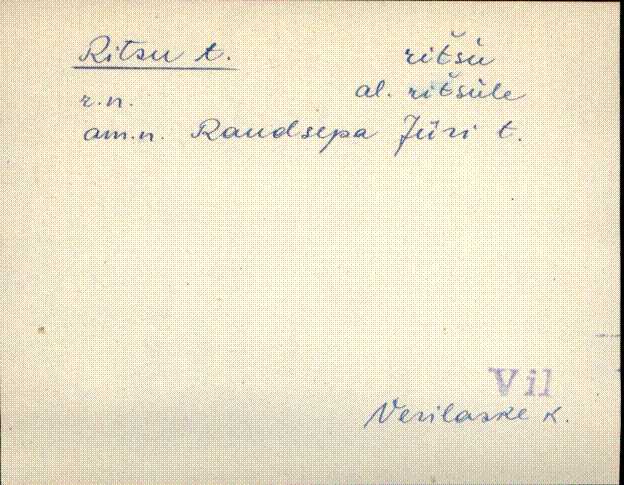 Ritsu t. ritšù
r.n. al. ritšùle
am.n. Raudsepa Jüri t.
Vil
Verilaske k.